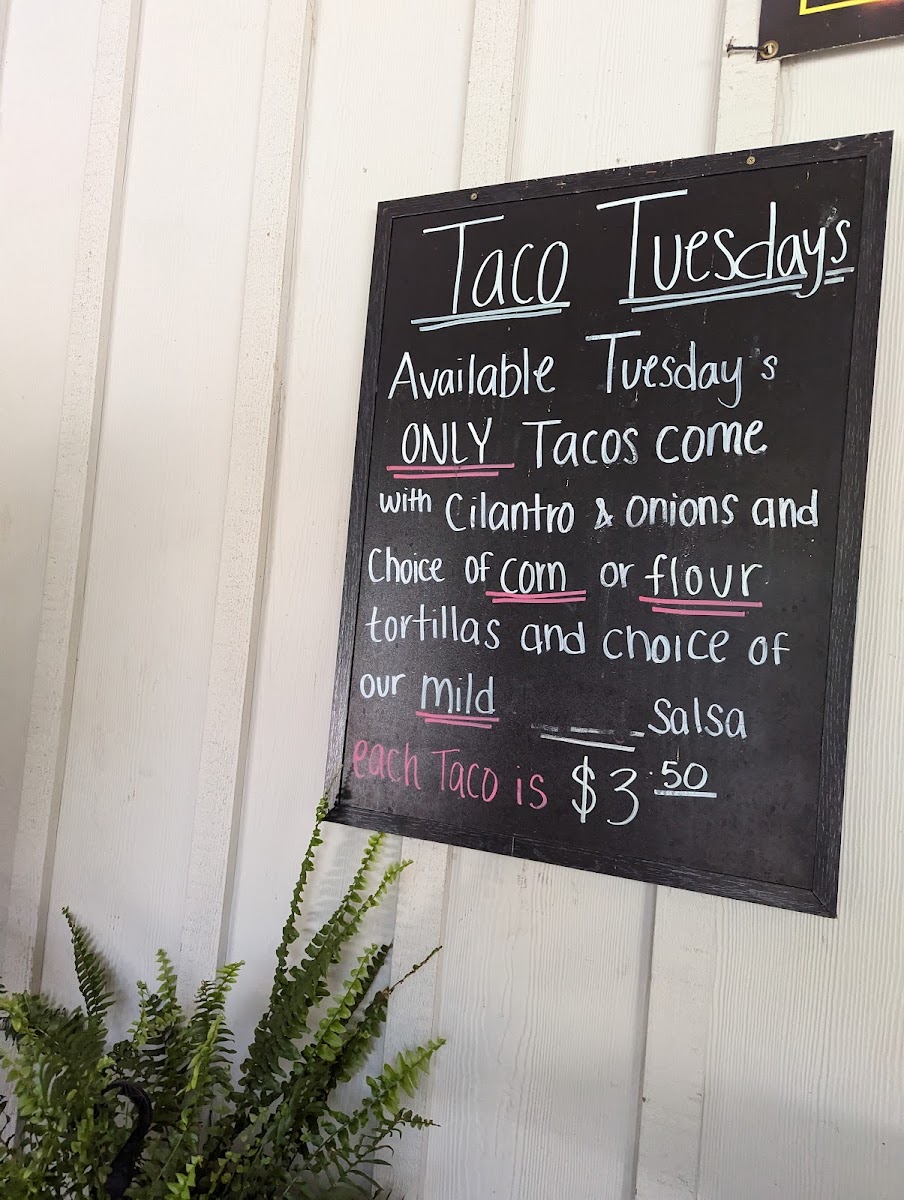 Taco Tuesday's
Available Tuesday's
ONLY Tacos come
with Cilantro & onions and
Choice of corn or flour
tortillas and choice of
our mild salsa
each Taco is $3.50